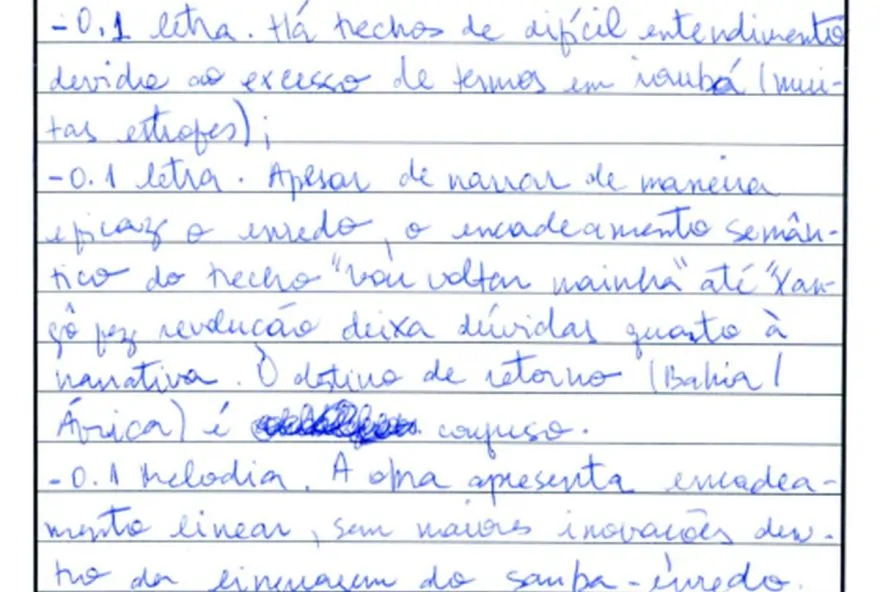 -0.1 letra. Há trechos de difícil entendimento
devido ao excesso de termos em iorubá (mui-
tas estrofes);
-0.1 letra. Apesar de narrar de maneira
eficaz o enredo, o encadeamento semân-
tico do trecho "vou voltar mainha" até "Xan-
gô fez revolução deixa dúvidas quanto à
narrativa. O destino de retorno (Bahia/
África) é confuso.
-0.1 Melodia. A obra apresenta encadea-
mento linear, sem maiores inovações den-
tro da linguagem do samba-enredo.